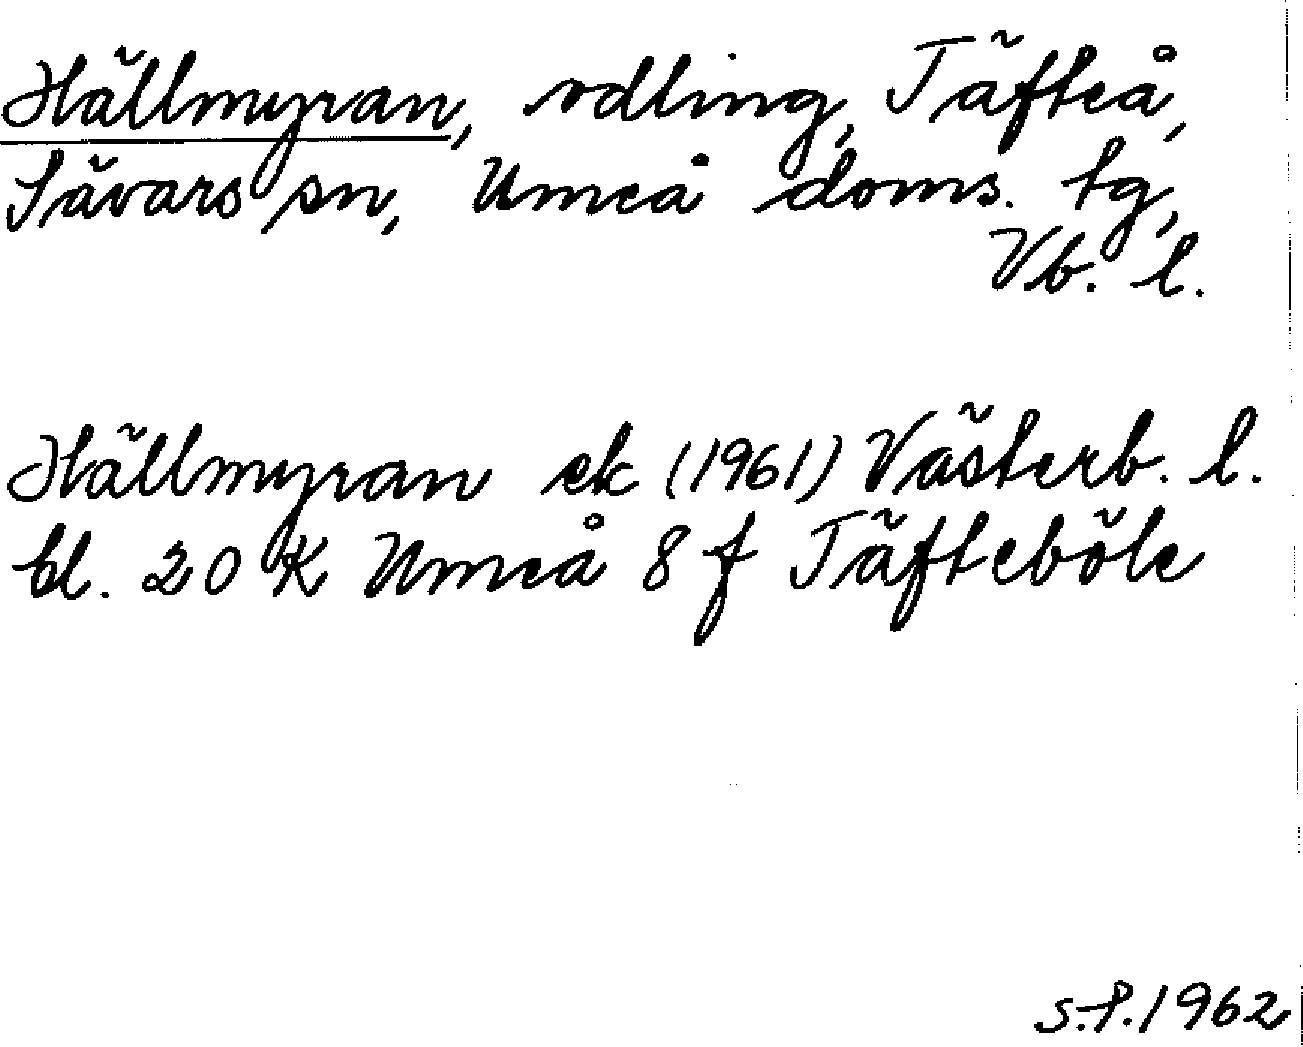 Hällmyran, odling, Täfteå,
Sävars sn, Umeå doms. tg,
Vb. l.
Hällmyran ek (1961) Västerb. l.
bl. 20 K Umeå 8 f Täfteböle
S.P. 1962